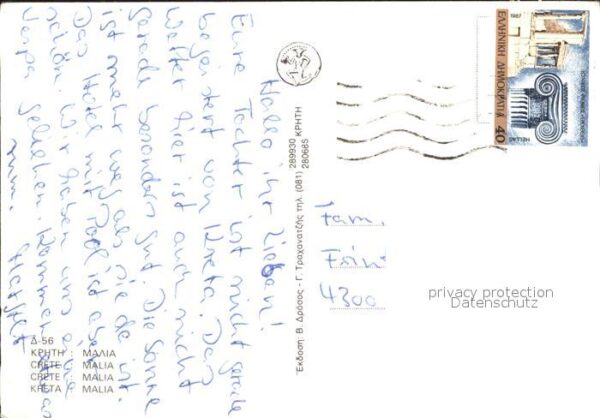 Hallo ihr Lieben!
Eure Tochter ist nicht gerade
begeistert von Kreta. Das
Wetter hier ist auch nicht
gerade besonders gut. Die Sonne
ist mehr weg als sie da ist.
Das Hotel mit Pool ist aber
schön. Wir haben uns eine
Vespa geliehen. Kommen etwas
rum.
Δ-56
ΚΡΗΤΗ : ΜΑΛΙΑ
CRETE : MALIA
CRETE : MALIA
KRETA : MALIA
Έκδοση: Β. Δρόσος - Γ. Τραχανατζής τηλ. (081) 289930 ΚΡΗΤΗ
280685
ΕΛΛΗΝΙΚΗ ΔΗΜΟΚΡΑΤΙΑ
1987
HELLAS
40
Fam.
4300
privacy protection
Datenschutz